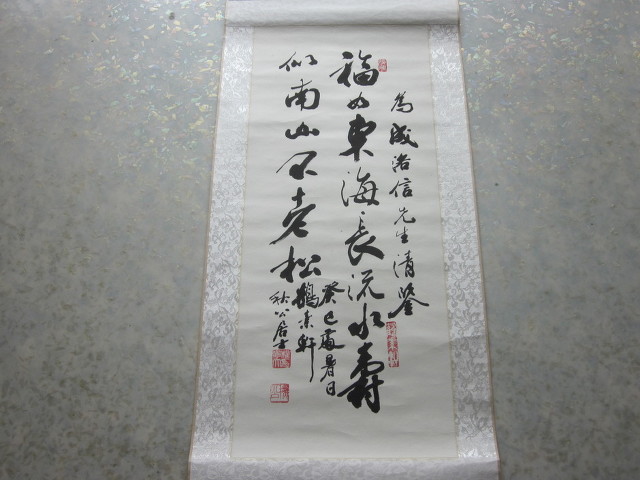 為成浴信先生清鑒
福如東海長流水壽
似南山不老松
癸巳處暑日
鶴來軒
秋公居士